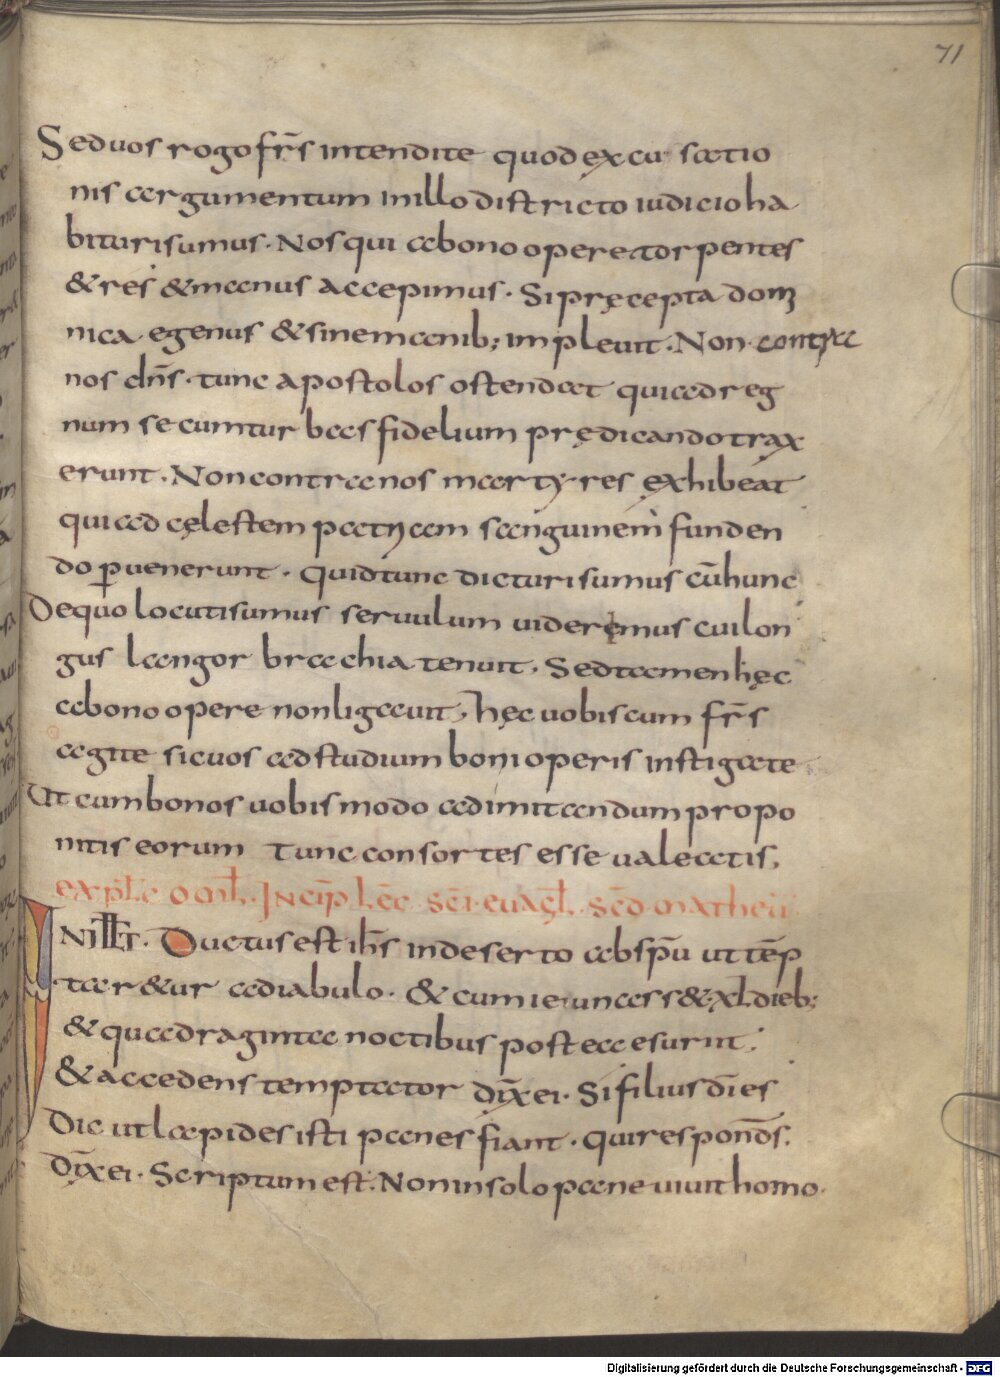 71
Sed uos rogo fr̄s intendite quod excusatio
nis argumentum in illo districto iudicio ha
bituri sumus. Nos qui a bono opere torpentes
& res & manus accepimus. Si pręcepta dom̄
nica egenus & sine manib; impleuit. Non contra
nos dn̄s. tunc apostolos ostendat qui ad reg
num secum turbas fidelium prędicando trax
erunt. Non contra nos martyres exhibeat
qui ad cęlestem patriam sanguinem funden
do ꝑuenerunt. Quid tunc dicturi sumus cū hunc
De quo locuti sumus seruulum uideręmus cui lon
gus langor brachia tenuit. Sed tamen hęc
a bono opere non ligauit, hęc uobiscum fr̄s
agite sic uos ad studium boni operis instigate
Ut cum bonos uobis modo ad imitandum propo
nitis eorum tunc consortes esse ualeatis,
expl̄c oml̄. Incip̄ lēc sc̄i euāḡl. sc̄d matheū
IN ILLT̄. Ductus est ih̄s in deserto ab sp̄u ut tēp
tar&ur a diabulo. & cum ieiunass& xl. dieb;
& quadraginta noctibus postea esurit;
& accedens temptator dix̄ ei. Si filius dī es
Dic ut lapides isti panes fiant. Qui respond̄s.
dix̄ ei. Scriptum est. Non in solo pane uiuit homo.
Digitalisierung gefördert durch die Deutsche Forschungsgemeinschaft - DFG